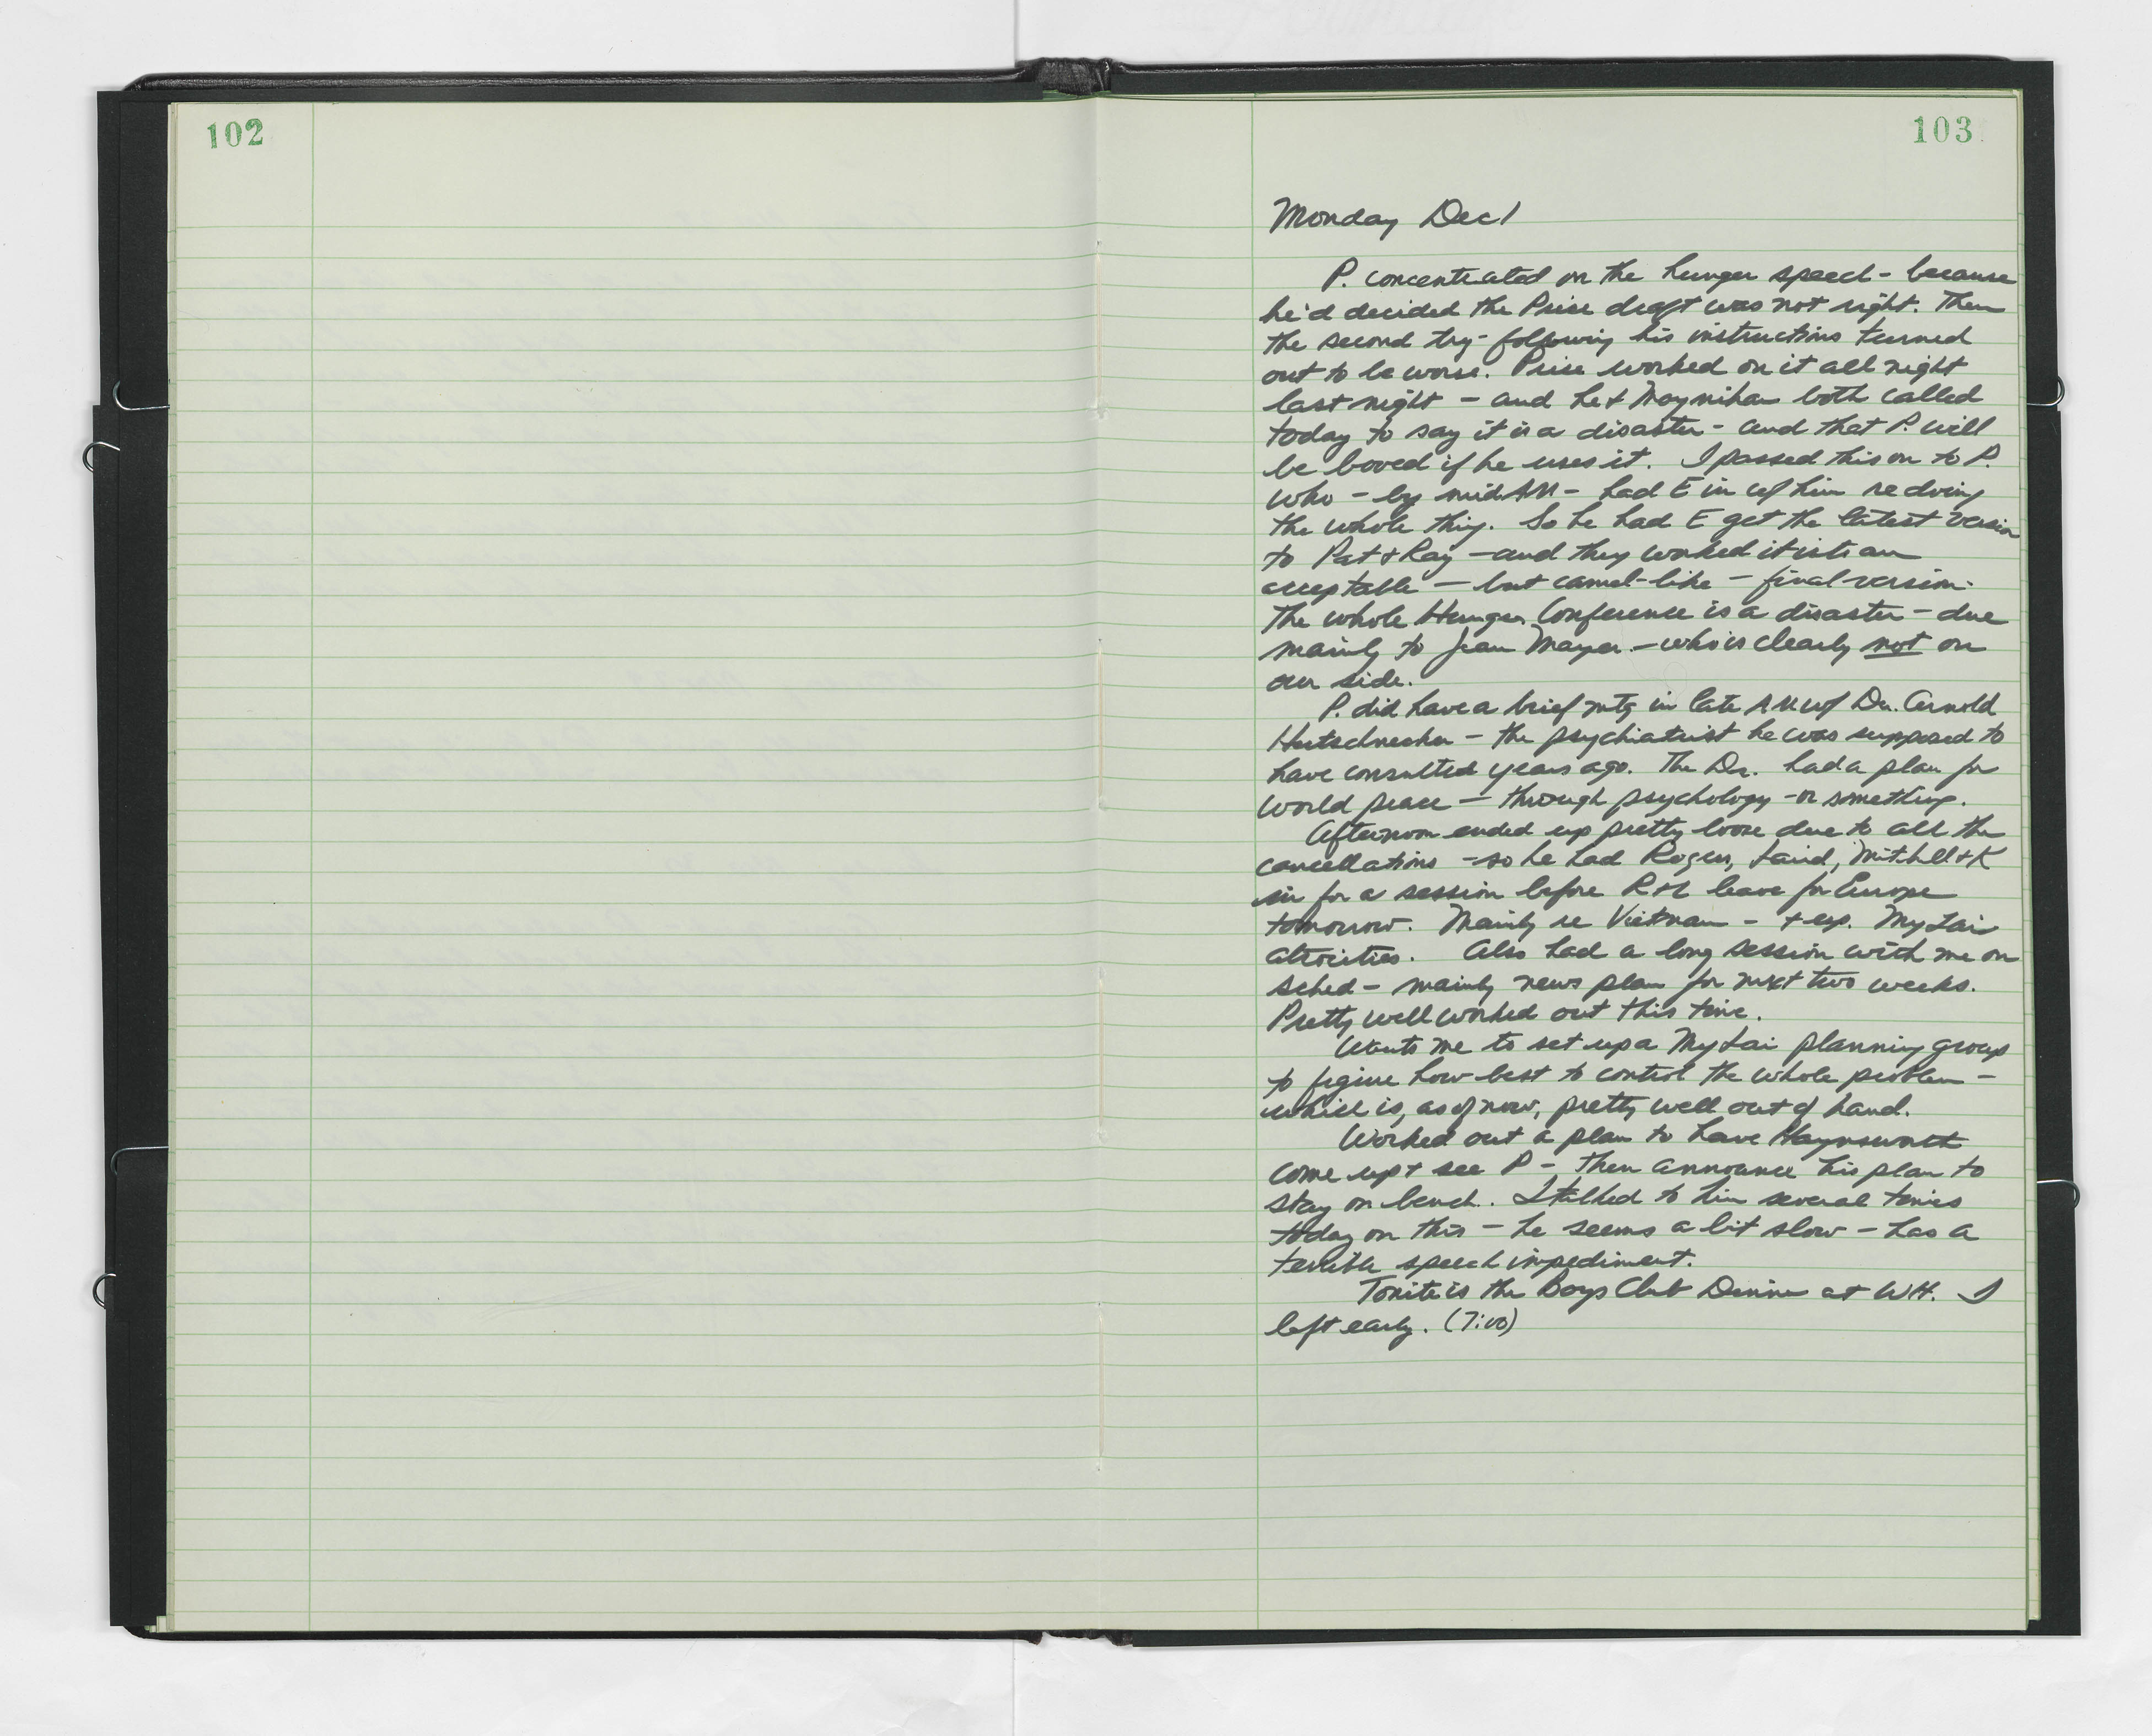 102
103
Monday Dec 1
P. concentrated on the hunger speech - because
he'd decided the Price draft was not right. Then
the second try - following his instructions turned
out to be worse. Price worked on it all night
last night - and he & Moynihan both called
today to say it is a disaster - and that P. will
be booed if he uses it. I passed this on to P.
who - by mid AM - had E in w/ him redoing
the whole thing. So he had E get the latest version
to Pat & Ray - and they worked it into an
acceptable - but camel-like - final version.
The whole Hunger Conference is a disaster - due
mainly to Jean Mayer - who is clearly not on
our side.
P. did have a brief mtg in late AM w/ Dr. Arnold
Hutschnecker - the psychiatrist he was supposed to
have consulted years ago. The Dr. had a plan for
world peace - through psychology - or something.
Afternoon ended up pretty loose due to all the
cancellations - so he had Rogers, Laird, Mitchell & K
in for a session before R & L leave for Europe
tomorrow. Mainly re Vietnam - & esp. My Lai
atrocities. Also had a long session with me on
sched - mainly news plan for next two weeks.
Pretty well worked out this time.
Wants me to set up a My Lai planning group
to figure how best to control the whole problem -
which is, as of now, pretty well out of hand.
Worked out a plan to have Haynsworth
come up & see P - then announce his plan to
stay on bench. I talked to him several times
today on this - he seems a bit slow - has a
terrible speech impediment.
Tonite is the Boys Club Dinner at WH. I
left early. (7:00)